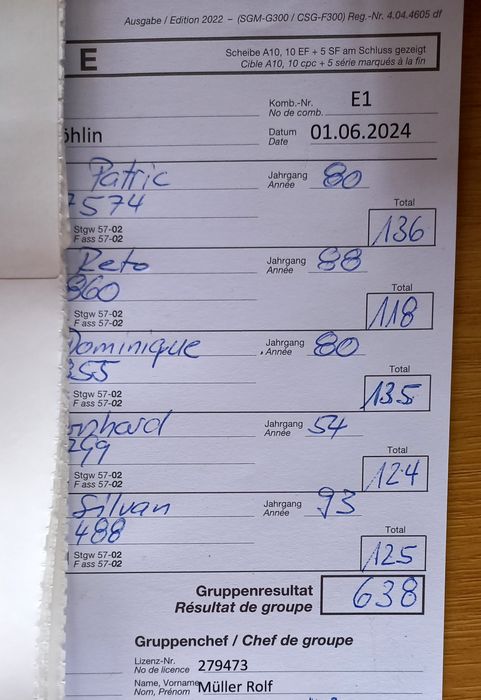 Ausgabe / Edition 2022 – (SGM-G300 / CSG-F300) Reg.-Nr. 4.04.4605 df
E
Scheibe A10, 10 EF + 5 SF am Schluss gezeigt
Cible A10, 10 cpc + 5 série marqués à la fin
Komb.-Nr.
No de comb.
E1
öhlin
Datum
Date
01.06.2024
Patric
Jahrgang
Année
80
574
Total
Stgw 57-02
F ass 57-02
136
Reto
Jahrgang
Année
88
860
Total
Stgw 57-02
F ass 57-02
118
Dominique
Jahrgang
Année
80
355
Total
Stgw 57-02
F ass 57-02
135
nhard
Jahrgang
Année
54
299
Total
Stgw 57-02
F ass 57-02
124
Silvan
Jahrgang
Année
93
488
Total
Stgw 57-02
F ass 57-02
125
Gruppenresultat
Résultat de groupe
638
Gruppenchef / Chef de groupe
Lizenz-Nr.
No de licence
279473
Name, Vorname
Nom, Prénom
Müller Rolf